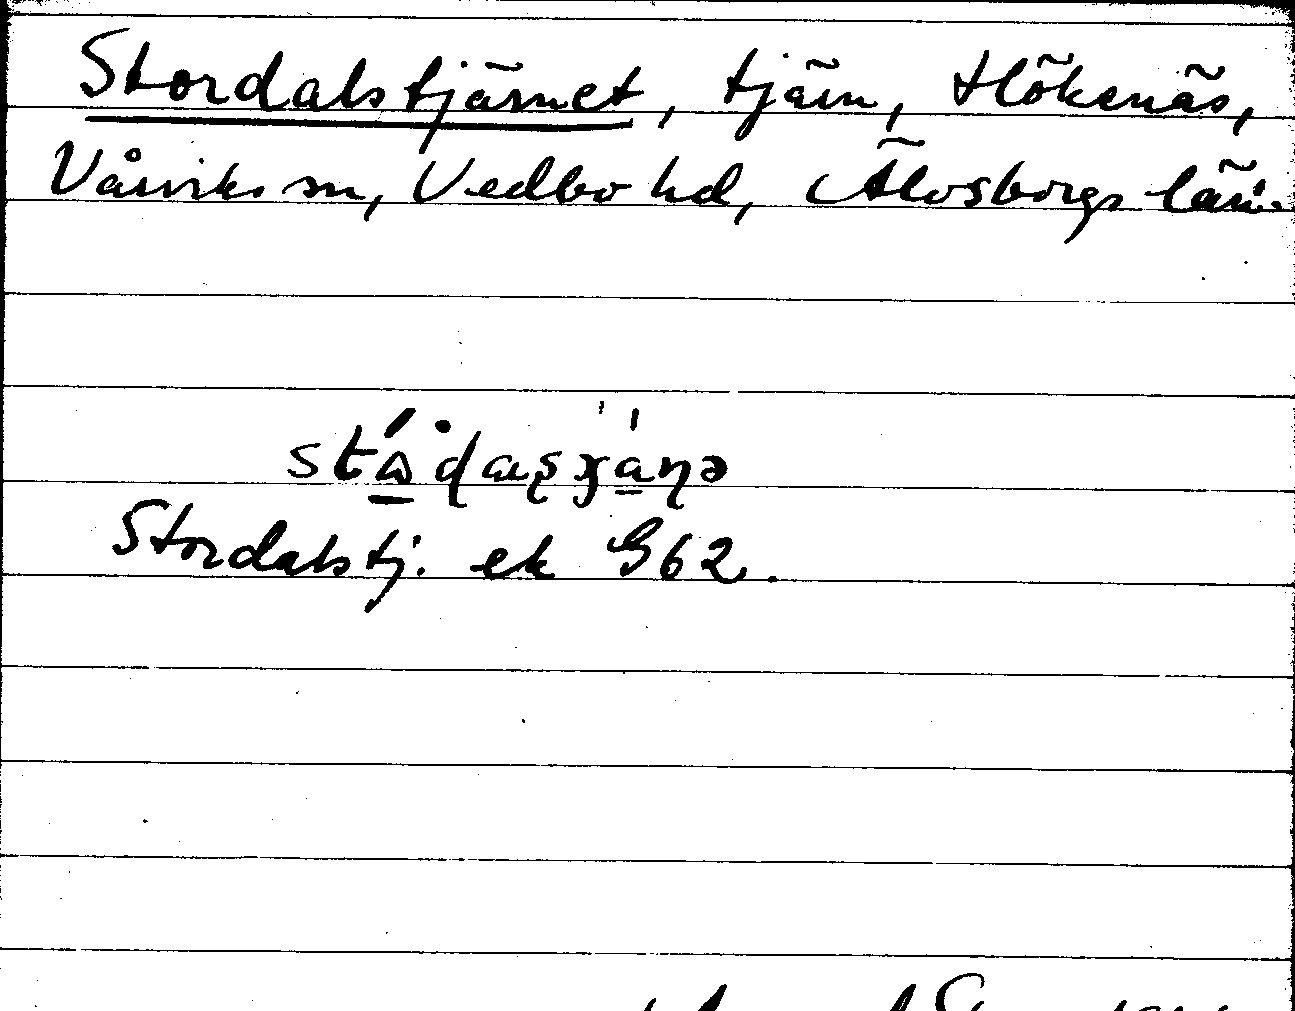 Stordalstjärnet, tjärn, Hökenäs,
Vårviks sn, Vedbo hd, Älvsborgs län.
Stordalstj. ek G62.